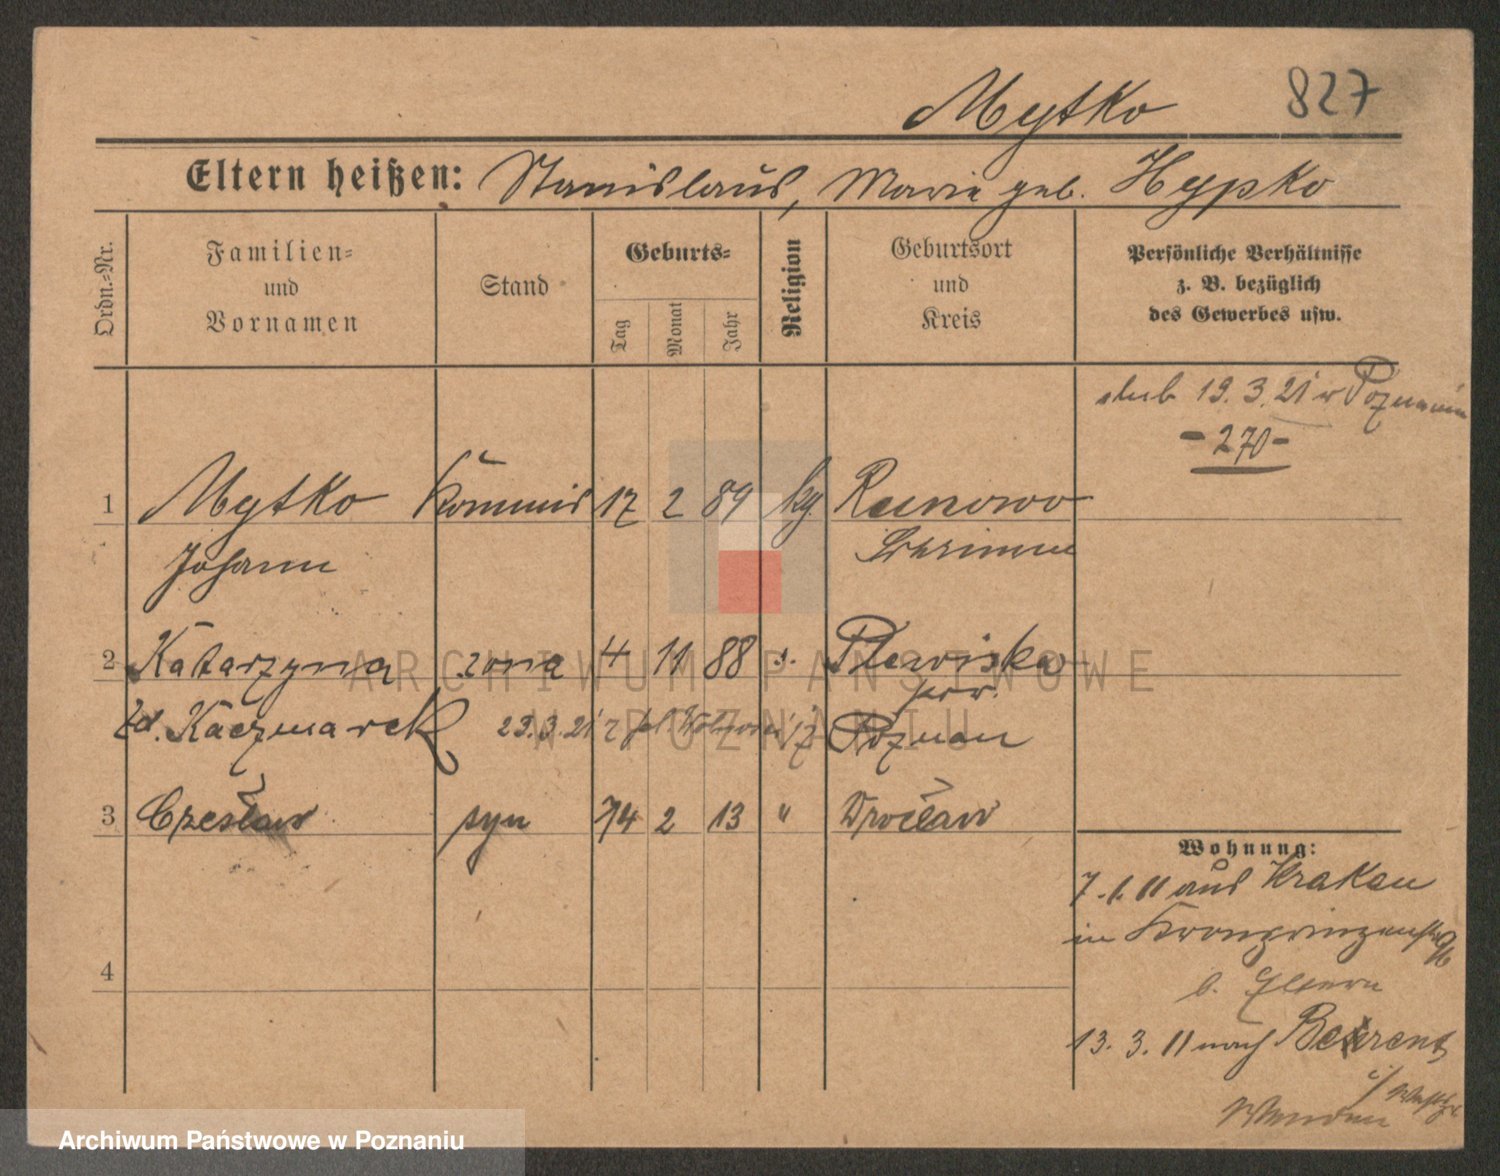 827
Mytko
Eltern heißen: Stanislaus, Marie geb. Hypko
Ordn.-Nr.
Familien- und Vornamen
Stand
Geburts-
Tag
Monat
Jahr
Religion
Geburtsort und Kreis
Persönliche Verhältnisse z. B. bezüglich des Gewerbes usw.
ślub 19.3.21 w Poznaniu
- 270 -
1 Mytko Kommis 17 2 89 kg. Runowo
Johann Schrimm
2 Katarzyna żona 4 11 88 s. Plewiska
pow.
zd. Kaczmarek 29.3.21 z Poznan
3 Czesław syn 14 2 13 " Wrocław
4
Wohnung:
7.1.11 aus Krakau
in Kronprinzenstr
b. Eltern
13.3.11 nach Berent
i/ Westpr.
ARCHIWUM PAŃSTWOWE
W POZNANIU
Archiwum Państwowe w Poznaniu